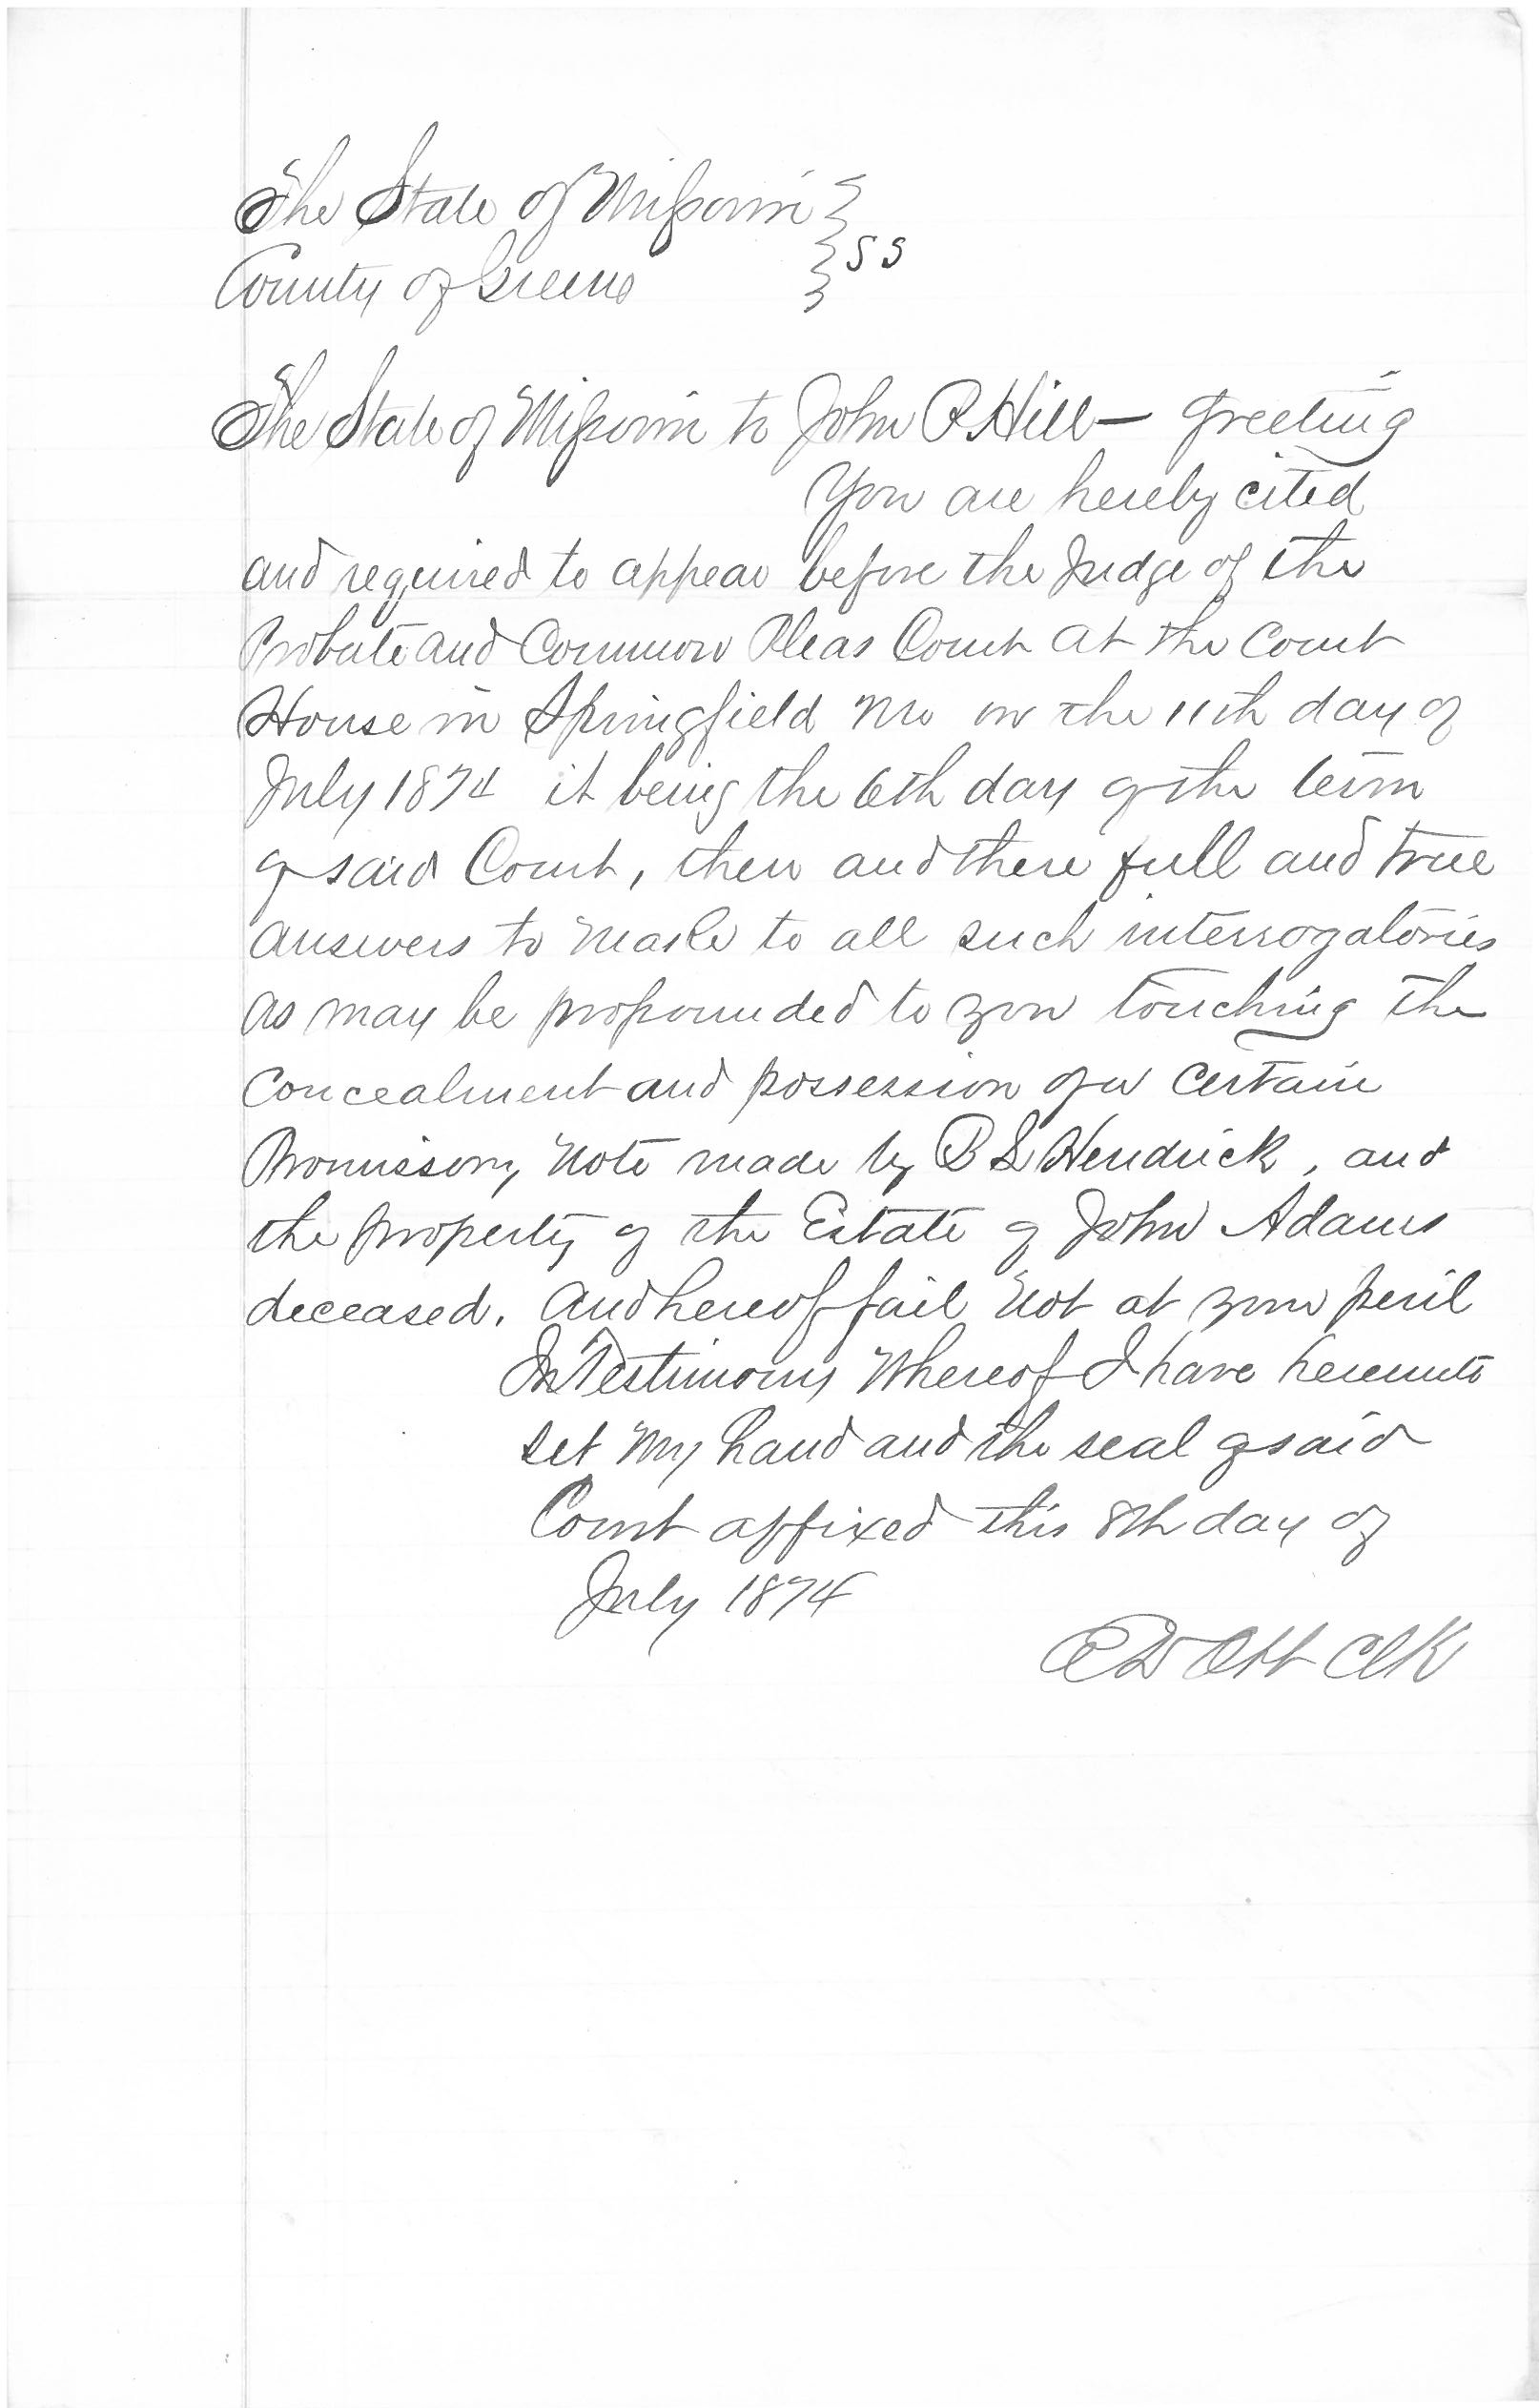 The State of Missouri }
County of Greene } SS
The State of Missouri to John P Hill — Greeting
You are hereby cited
and required to appear before the Judge of the
Probate and Common Pleas Court at the Court
House in Springfield Mo on the 11th day of
July 1874 it being the 6th day of the term
of said Court, then and there full and true
answers to make to all such interrogatories
as may be propounded to you touching the
concealment and possession of a certain
Promissory Note made by B S Hendrick, and
the property of the Estate of John Adams
deceased. And hereof fail not at your peril
In Testimony Whereof I have hereunto
set my hand and the seal of said
Court affixed this 8th day of
July 1874
Ott Clk